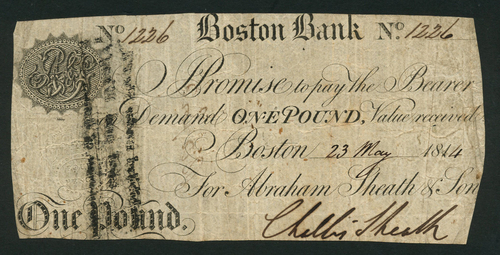 No 1226 Boston Bank No. 1226
I Promise to pay the Bearer
on Demand ONE POUND, Value received
Boston 23 May 1814
For Abraham Sheath & Son
One Pound. Challis Sheath